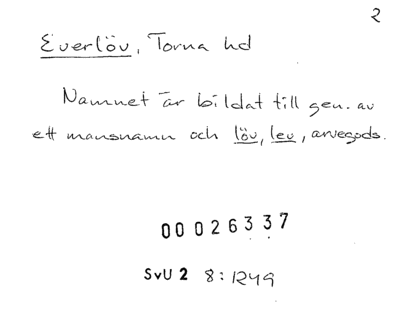 2
Everlöv, Torna hd
Namnet är bildat till gen. av
ett mansnamn och löv, lev, arvegods.
00026337
SvU 2 8:1249